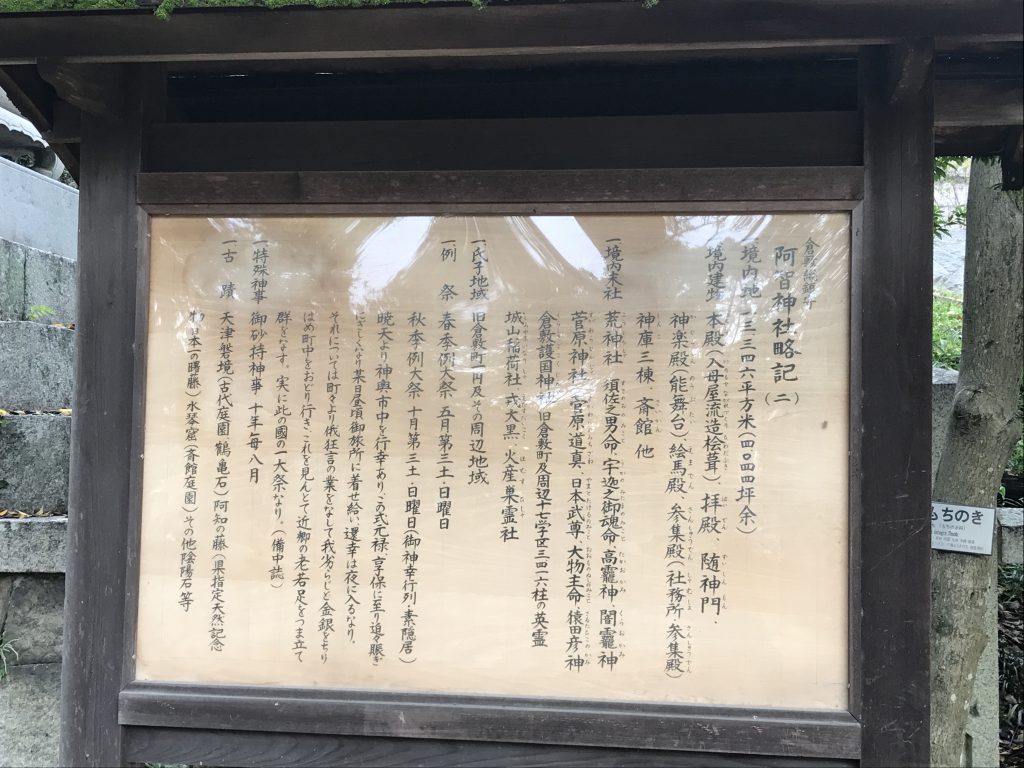 倉敷総鎮守
阿智神社略記(二)
境内地 一三三四六平方米(四〇四四坪余)
境内建物 本殿(入母屋流造桧葺)、拝殿、随神門、
神楽殿(能舞台)絵馬殿、参集殿(社務所・参集殿)
神庫三棟、斎館、他
一境内末社 荒神社、須佐之男命、宇迦之御魂命、高龗神、闇龗神
菅原神社、菅原道真、日本武尊、大物主命、猿田彦神
倉敷護国神社 旧倉敷町及周辺十七学区三四一六柱の英霊
城山稲荷社、戎大黒、火産巣霊社
一氏子地域 旧倉敷町一円及その周辺地域
一例 祭 春季例大祭 五月第三土・日曜日
秋季例大祭 十月第三土・日曜日(御神幸行列・素隠居)
暁天より神輿市中を行幸ありこの式元禄、享保に至り追々賑ぎ
にぎしくなり某日昼頃御旅所に着せ給い、還幸は夜に入るなり。
それについては町々より俄狂言の業をなして我劣らじと金銀をちり
はめ町中をおどり行きこれを見んとて近郷の老若足をつま立て
群をなす。実に此の國の一大祭なり。(備中誌)
一特殊神事 御砂持神事 十年毎八月
一古 蹟 天津磐境(古代庭園 鶴亀石)阿知の藤(県指定天然記念
物日本一の曙藤)水琴窟(斎館庭園)その他陰陽石等
もちのき